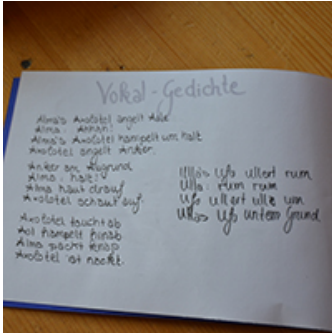 Vokal-Gedichte
Alma's Axolotel angelt Aale
Alma: Ahhan!
Alma's Axolotel hampelt um halt
Axolotel angelt Anker.
Anker am Abgrund
Alma: halt!
Alma haut drauf
Axolotel schaut auf.
Axolotel taucht ab
Aal hampelt hinab
Alma packt knap
Axolotel ist nackt.
Ulla's Ufo ullert rum
Ulla: rum rum
Ufo ullert ulla um
Ullas Ufo unterm Grund